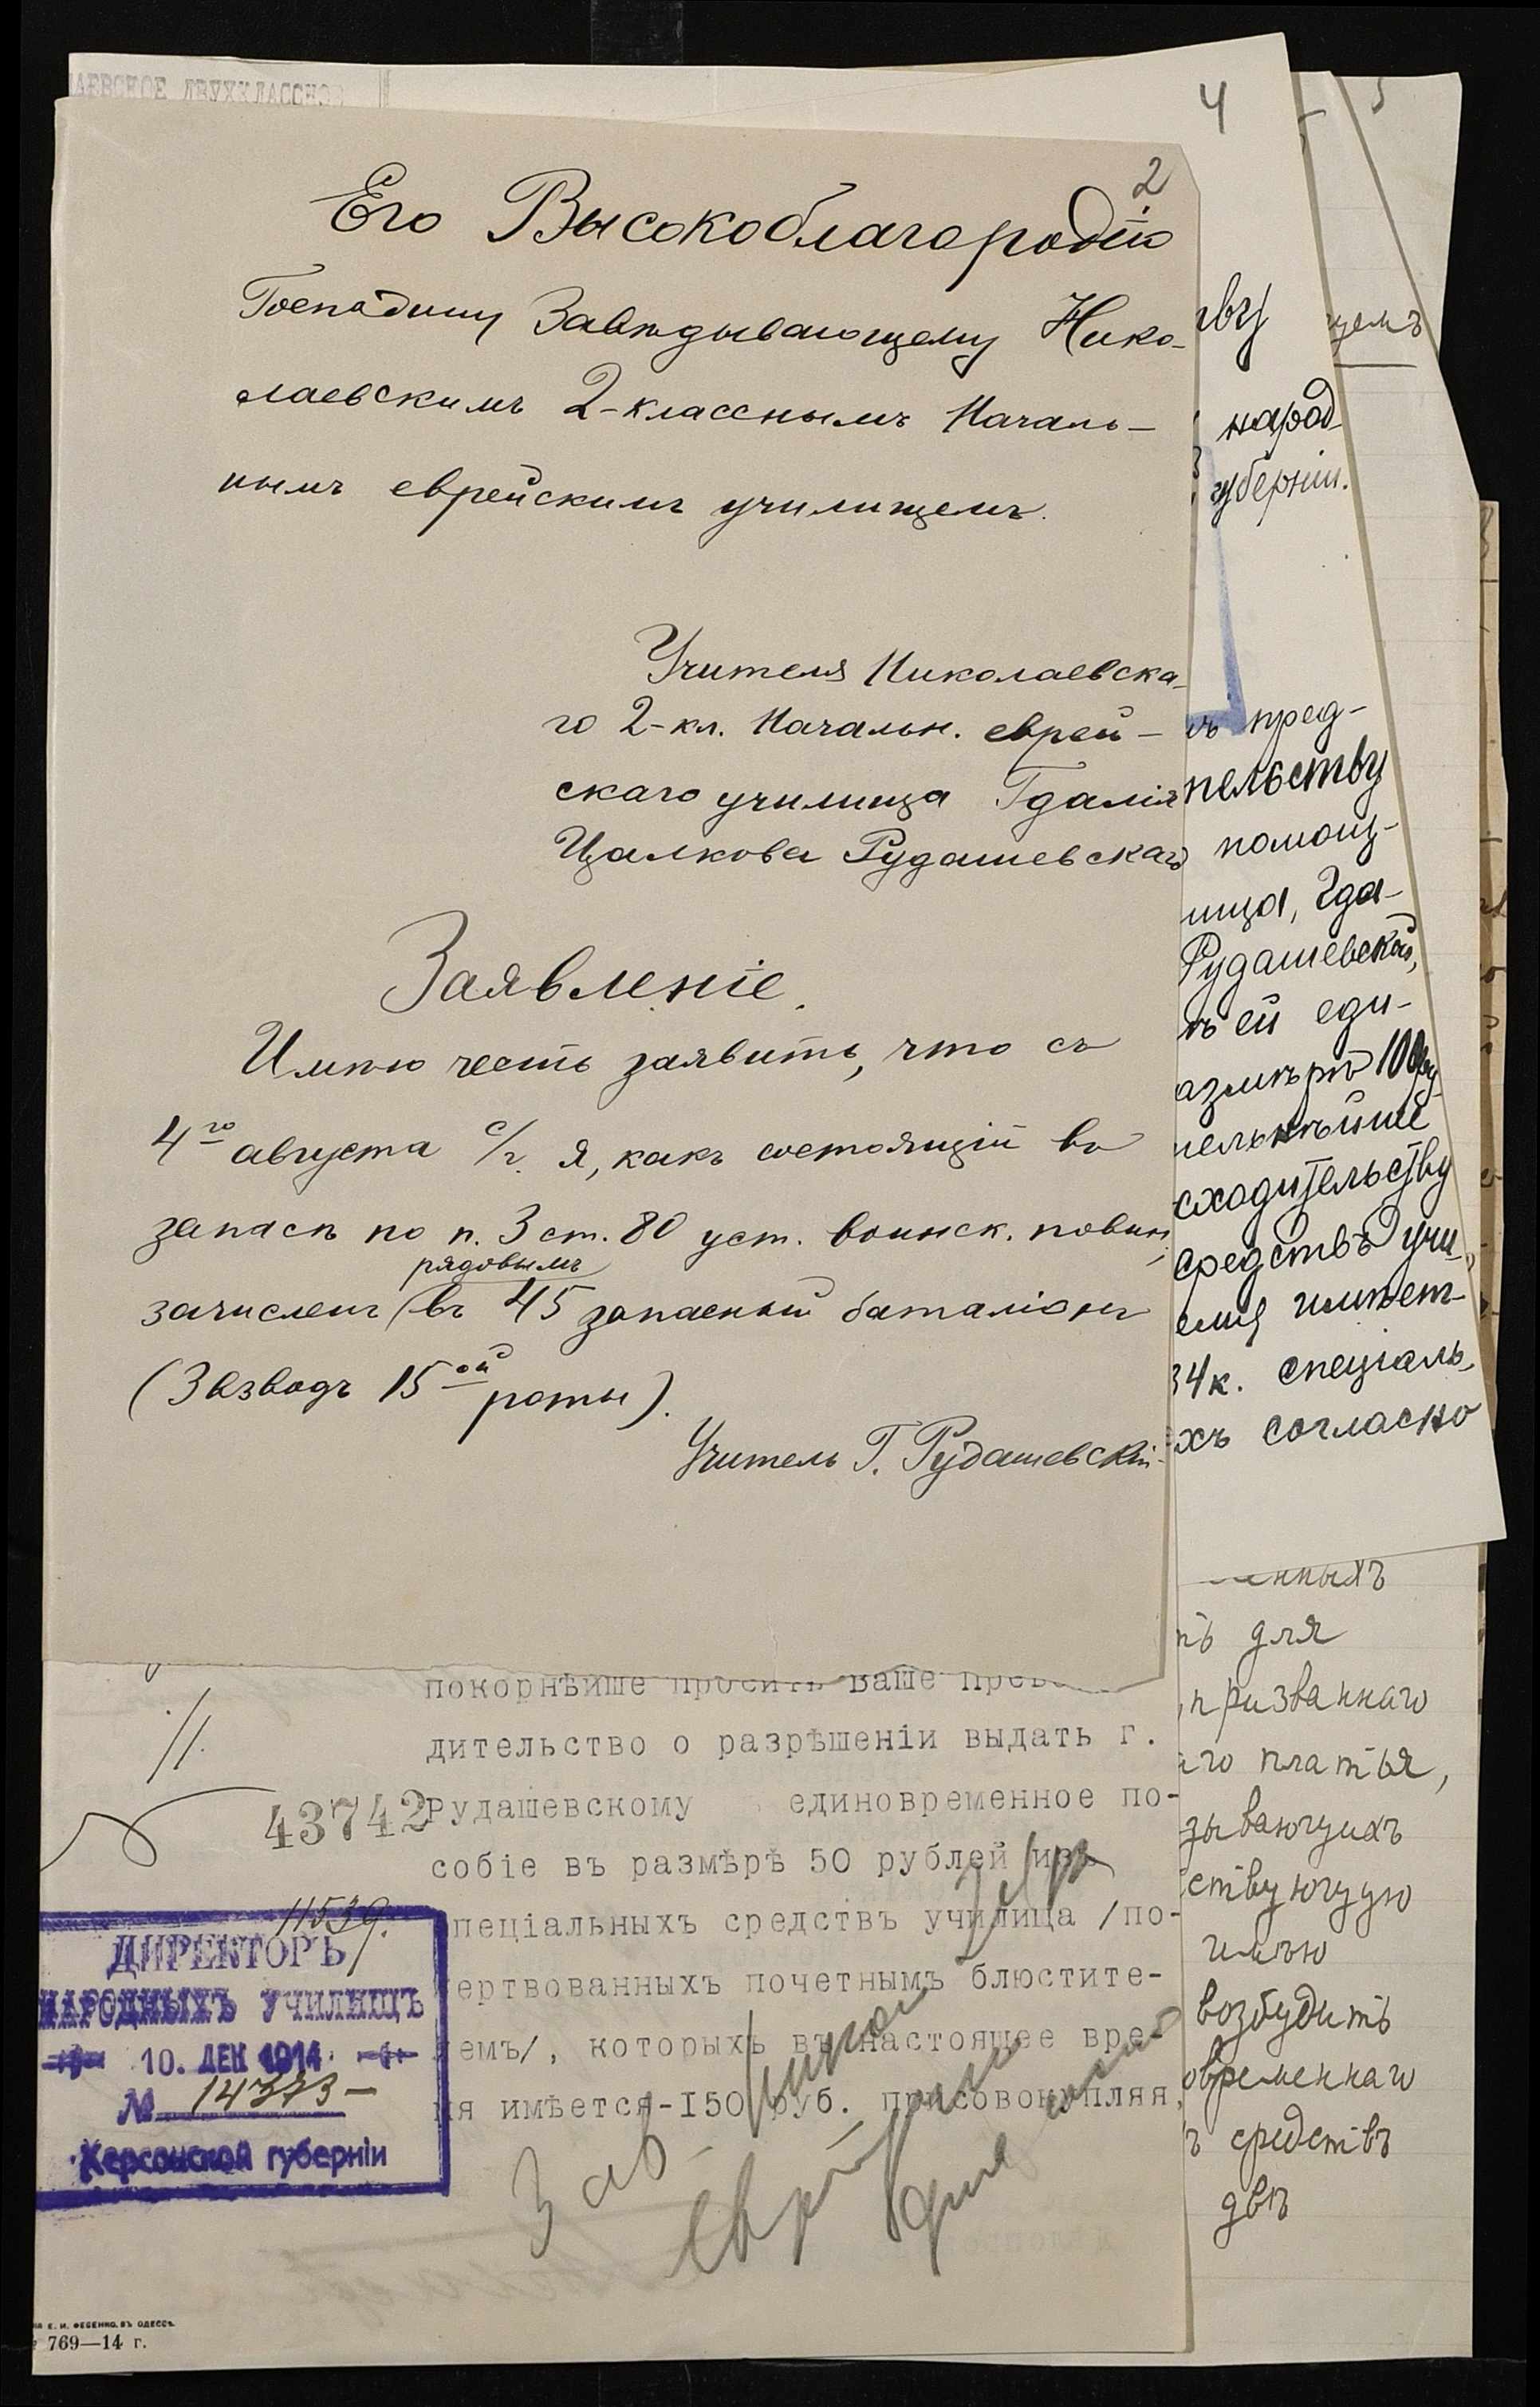 АЕВСКОЕ ДВУХКЛАССНО
4
5
2
Его Высокоблагородію
Господину Завѣдывающему Нико-
лаевскимъ 2-класснымъ Началь-
нымъ еврейскимъ училищемъ.
Учителя Николаевска-
го 2-кл. Начальн. еврей-
скаго училища Гдалія
Цалкова Рудашевскаго
Заявленіе.
Имѣю честь заявить, что съ
4го августа с/г. я, какъ состоящій въ
запасѣ по п. 3 ст. 80 уст. воинск. повин.
рядовымъ
зачисленъ въ 45 запасный баталіонъ
(3 взводъ 15ой роты).
Учитель Г. Рудашевскій
щемъ
народ
губерніи.
пред-
тельству
помощ-
ища, Гда-
Рудашевской,
ей еди-
азмѣрѣ 100 ру
сходительству
средствъ учи
имѣет-
34 к. спеціаль-
хъ согласно
енныхъ
для
призваннаго
аго платья,
зывающихъ
ствующую
имѣю
возбудить
овременнаго
ъ средствъ
двѣ
покорнѣйше просить ваше прев
дительство о разрѣшеніи выдать г.
43742
Рудашевскому единовременное по-
собіе въ размѣрѣ 50 рублей изъ
спеціальныхъ средствъ училища /по-
жертвованныхъ почетнымъ блюстите-
лемъ/, которыхъ въ настоящее вре-
мя имѣется-150 руб. присовокупляя,
11539.
ДИРЕКТОРЪ
НАРОДНЫХЪ УЧИЛИЩЪ
10. ДЕК 1914
№ 14373-
Херсонской губерніи
Зав.
Е. И. ФЕСЕНКО, ВЪ ОДЕССѢ.
769—14 г.